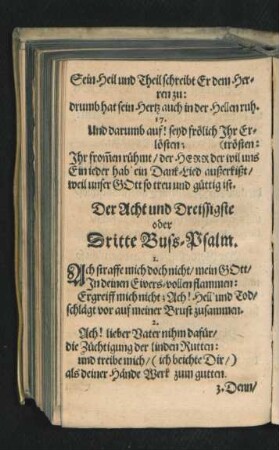 Sein Heil und Theil schreibt Er dem Her-
ren zu:
drumb hat sein Hertz auch in der Hellen ruh.
17.
Und darumb auf! seyd frölich Ihr Er-
lösten: (trösten:
Ihr from̃en rühmt / der HERR der wil uns
Ein ieder hab' ein Danck-Lied außerkißt /
weil unser GOtt so treu und güttig ist.
Der Acht und Dreissigste
oder
Dritte Buss-Psalm.
1.
Ach straffe mich doch nicht / mein GOtt /
In deinen Eivers-vollen flammen:
Ergreiff mich nicht; Ach! Hell' und Tod /
schlägt vor auf meiner Brust zusammen.
2.
Ach! lieber Vater nihm dafür /
die Züchtigung der linden Rutten:
und treibe mich / (ich beichte Dir /)
als deiner Hände Werk zum gutten.
3. Denn /